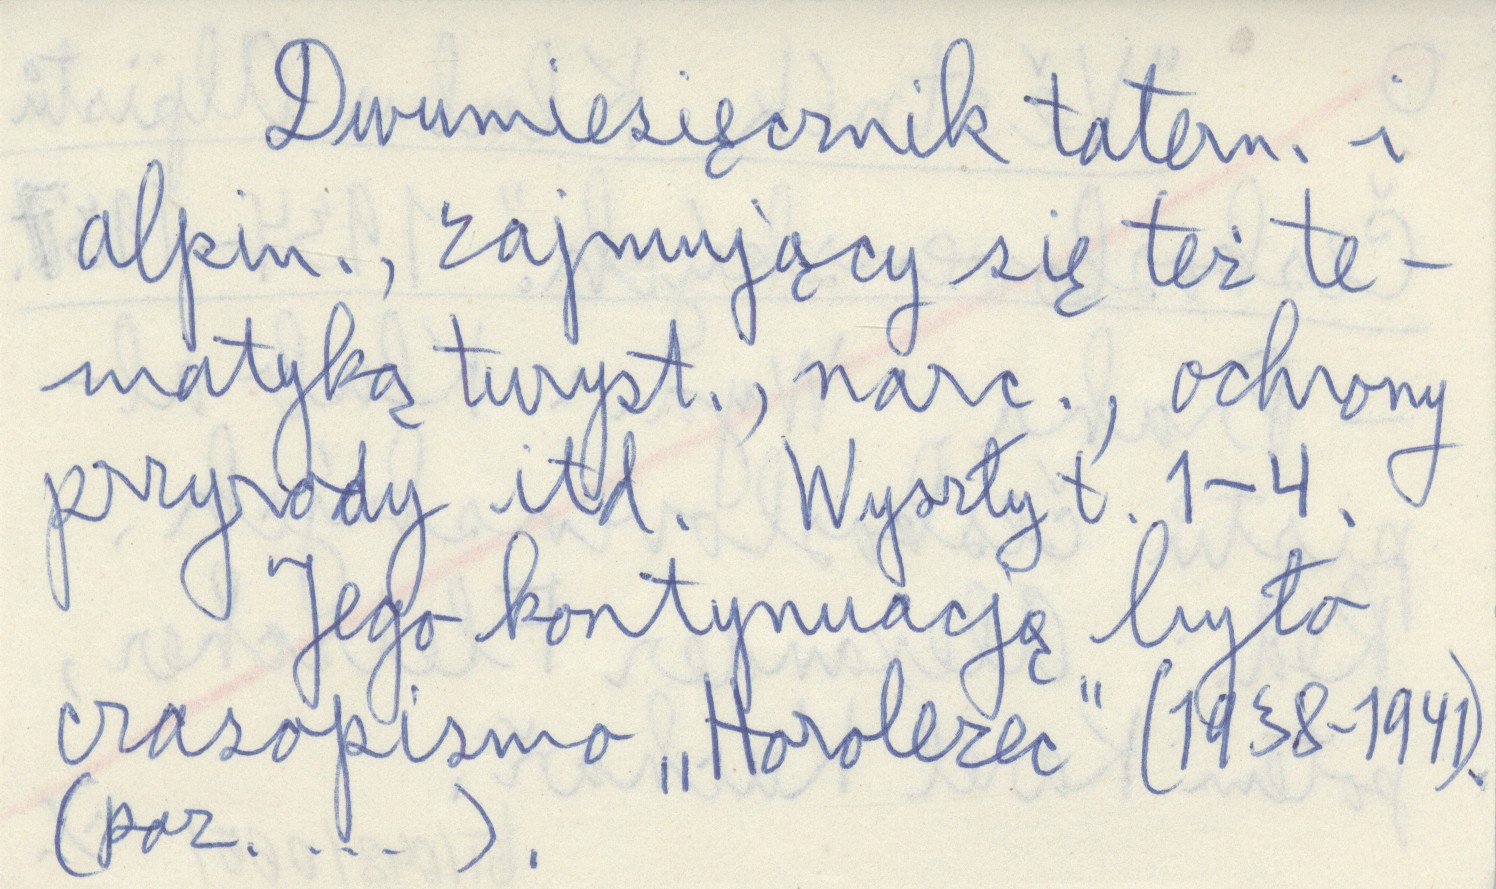 Dwumiesięcznik tatern. i
alpin., zajmujący się też te-
matyką turyst., narc., ochrony
przyrody itd. Wyszły t. 1-4.
Jego kontynuacją było
czasopismo „Horolezec" (1938-1941).
(por. ....).